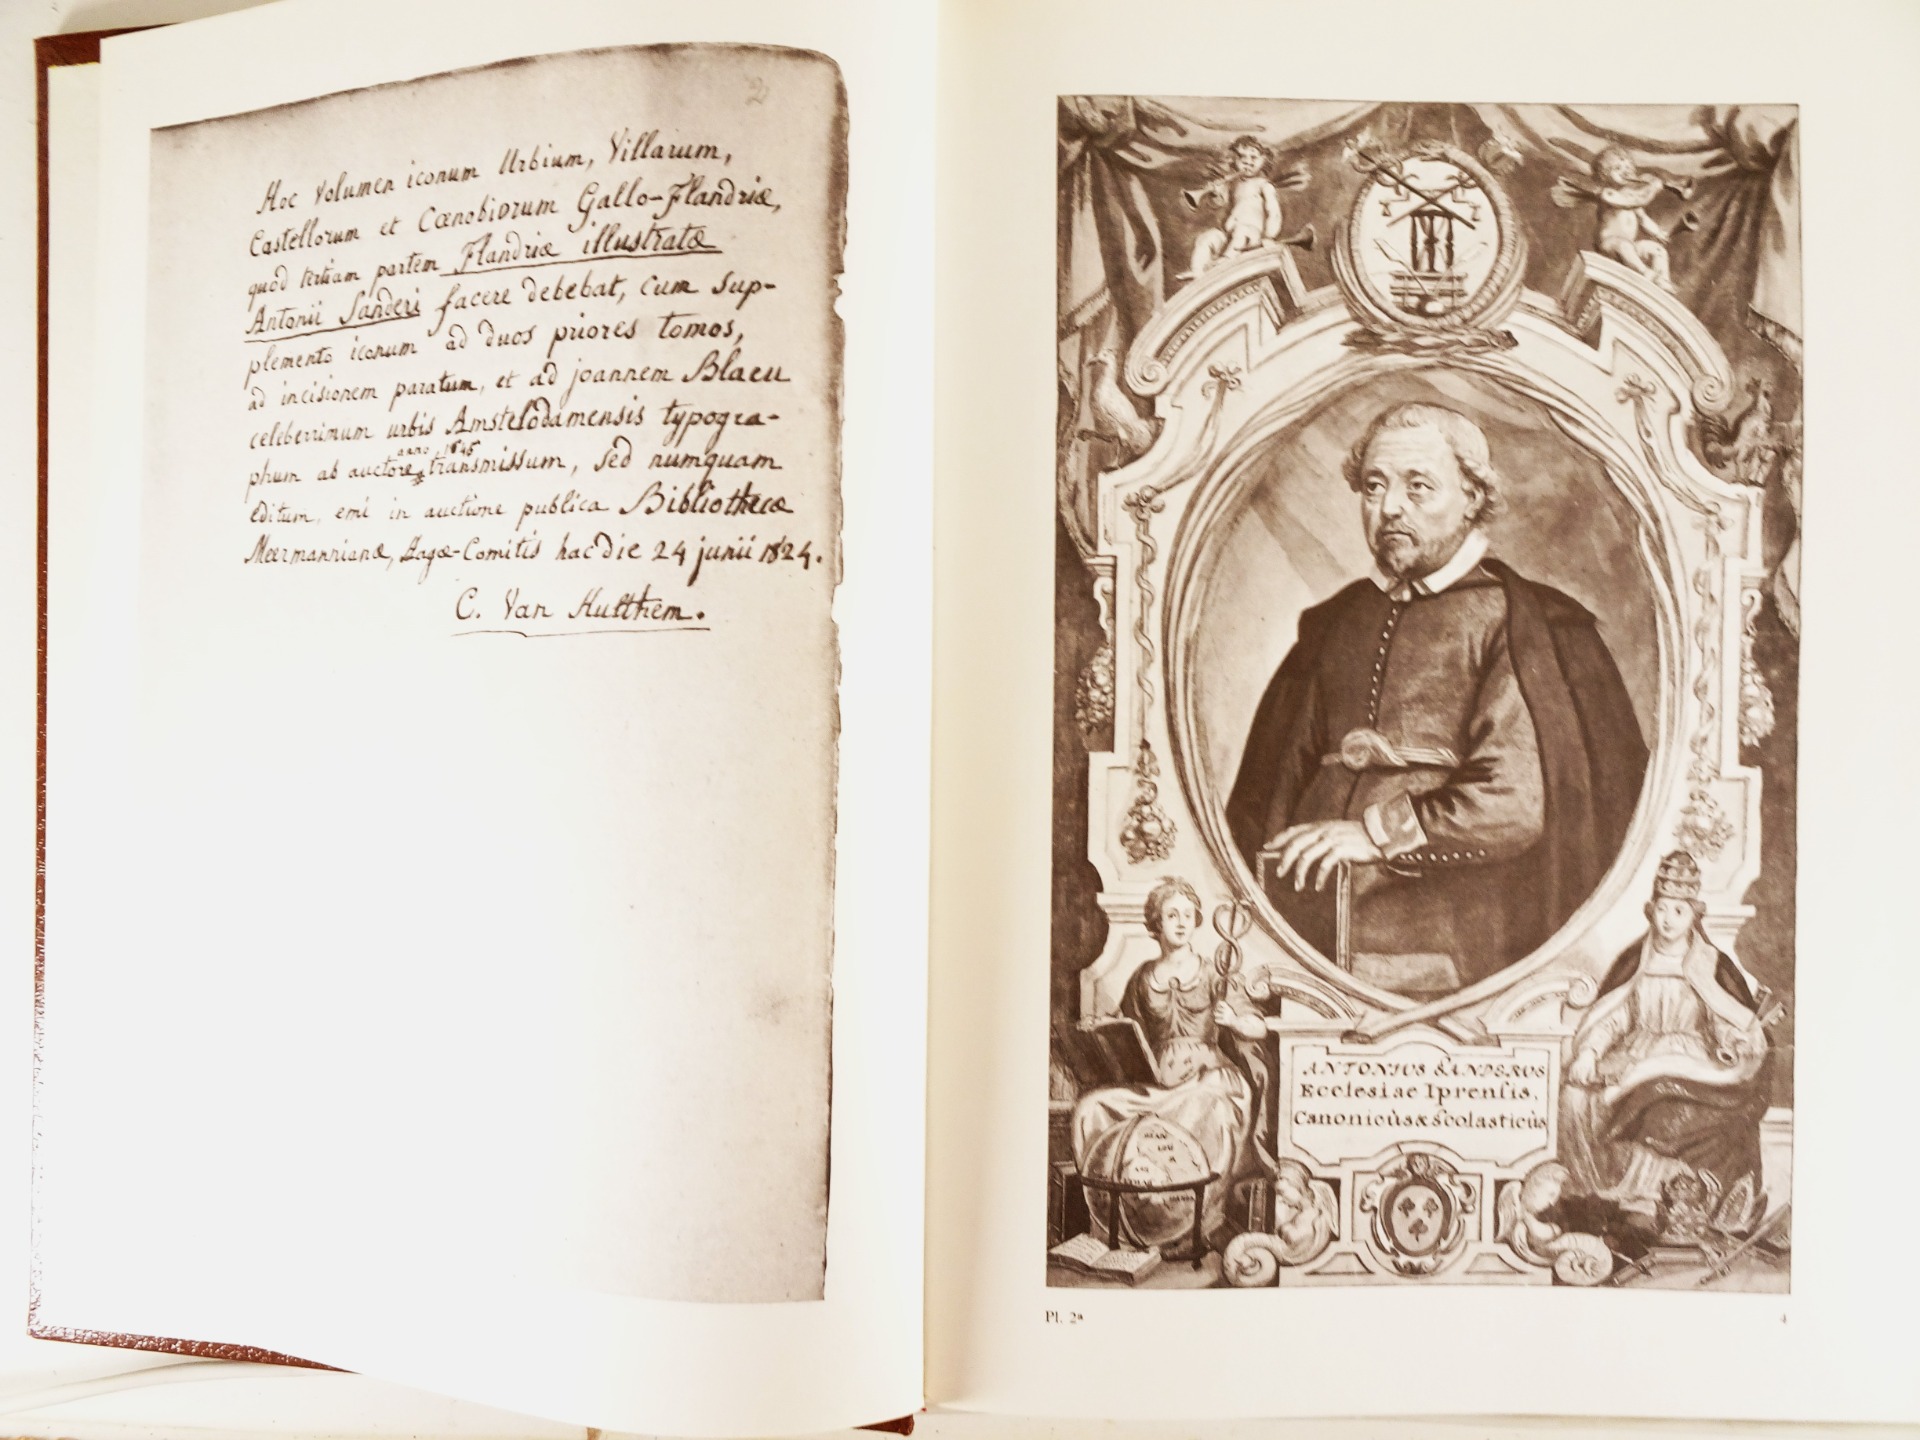 2
Hoc Volumen iconum Urbium, Villarum,
Castellorum et Cœnobiorum Gallo-Flandriæ,
quod tertiam partem Flandriæ illustratæ
Antonii Sanderi facere debebat, cum sup-
plemento iconum ad duos priores tomos,
ad incisionem paratum, et ad joannem Blaeu
celeberrimum urbis Amstelodamensis typogra-
anno 1645
phum ab auctore transmissum, sed numquam
editum, emi in auctione publica Bibliothecæ
Meermannianæ, Hagæ-Comitis hac die 24 junii 1824.
C. Van Hulthem.
ANTONIVS SANDERVS
Ecclesiae Iprensis,
Canonicùs & Scolasticùs
Pl. 2ª
4